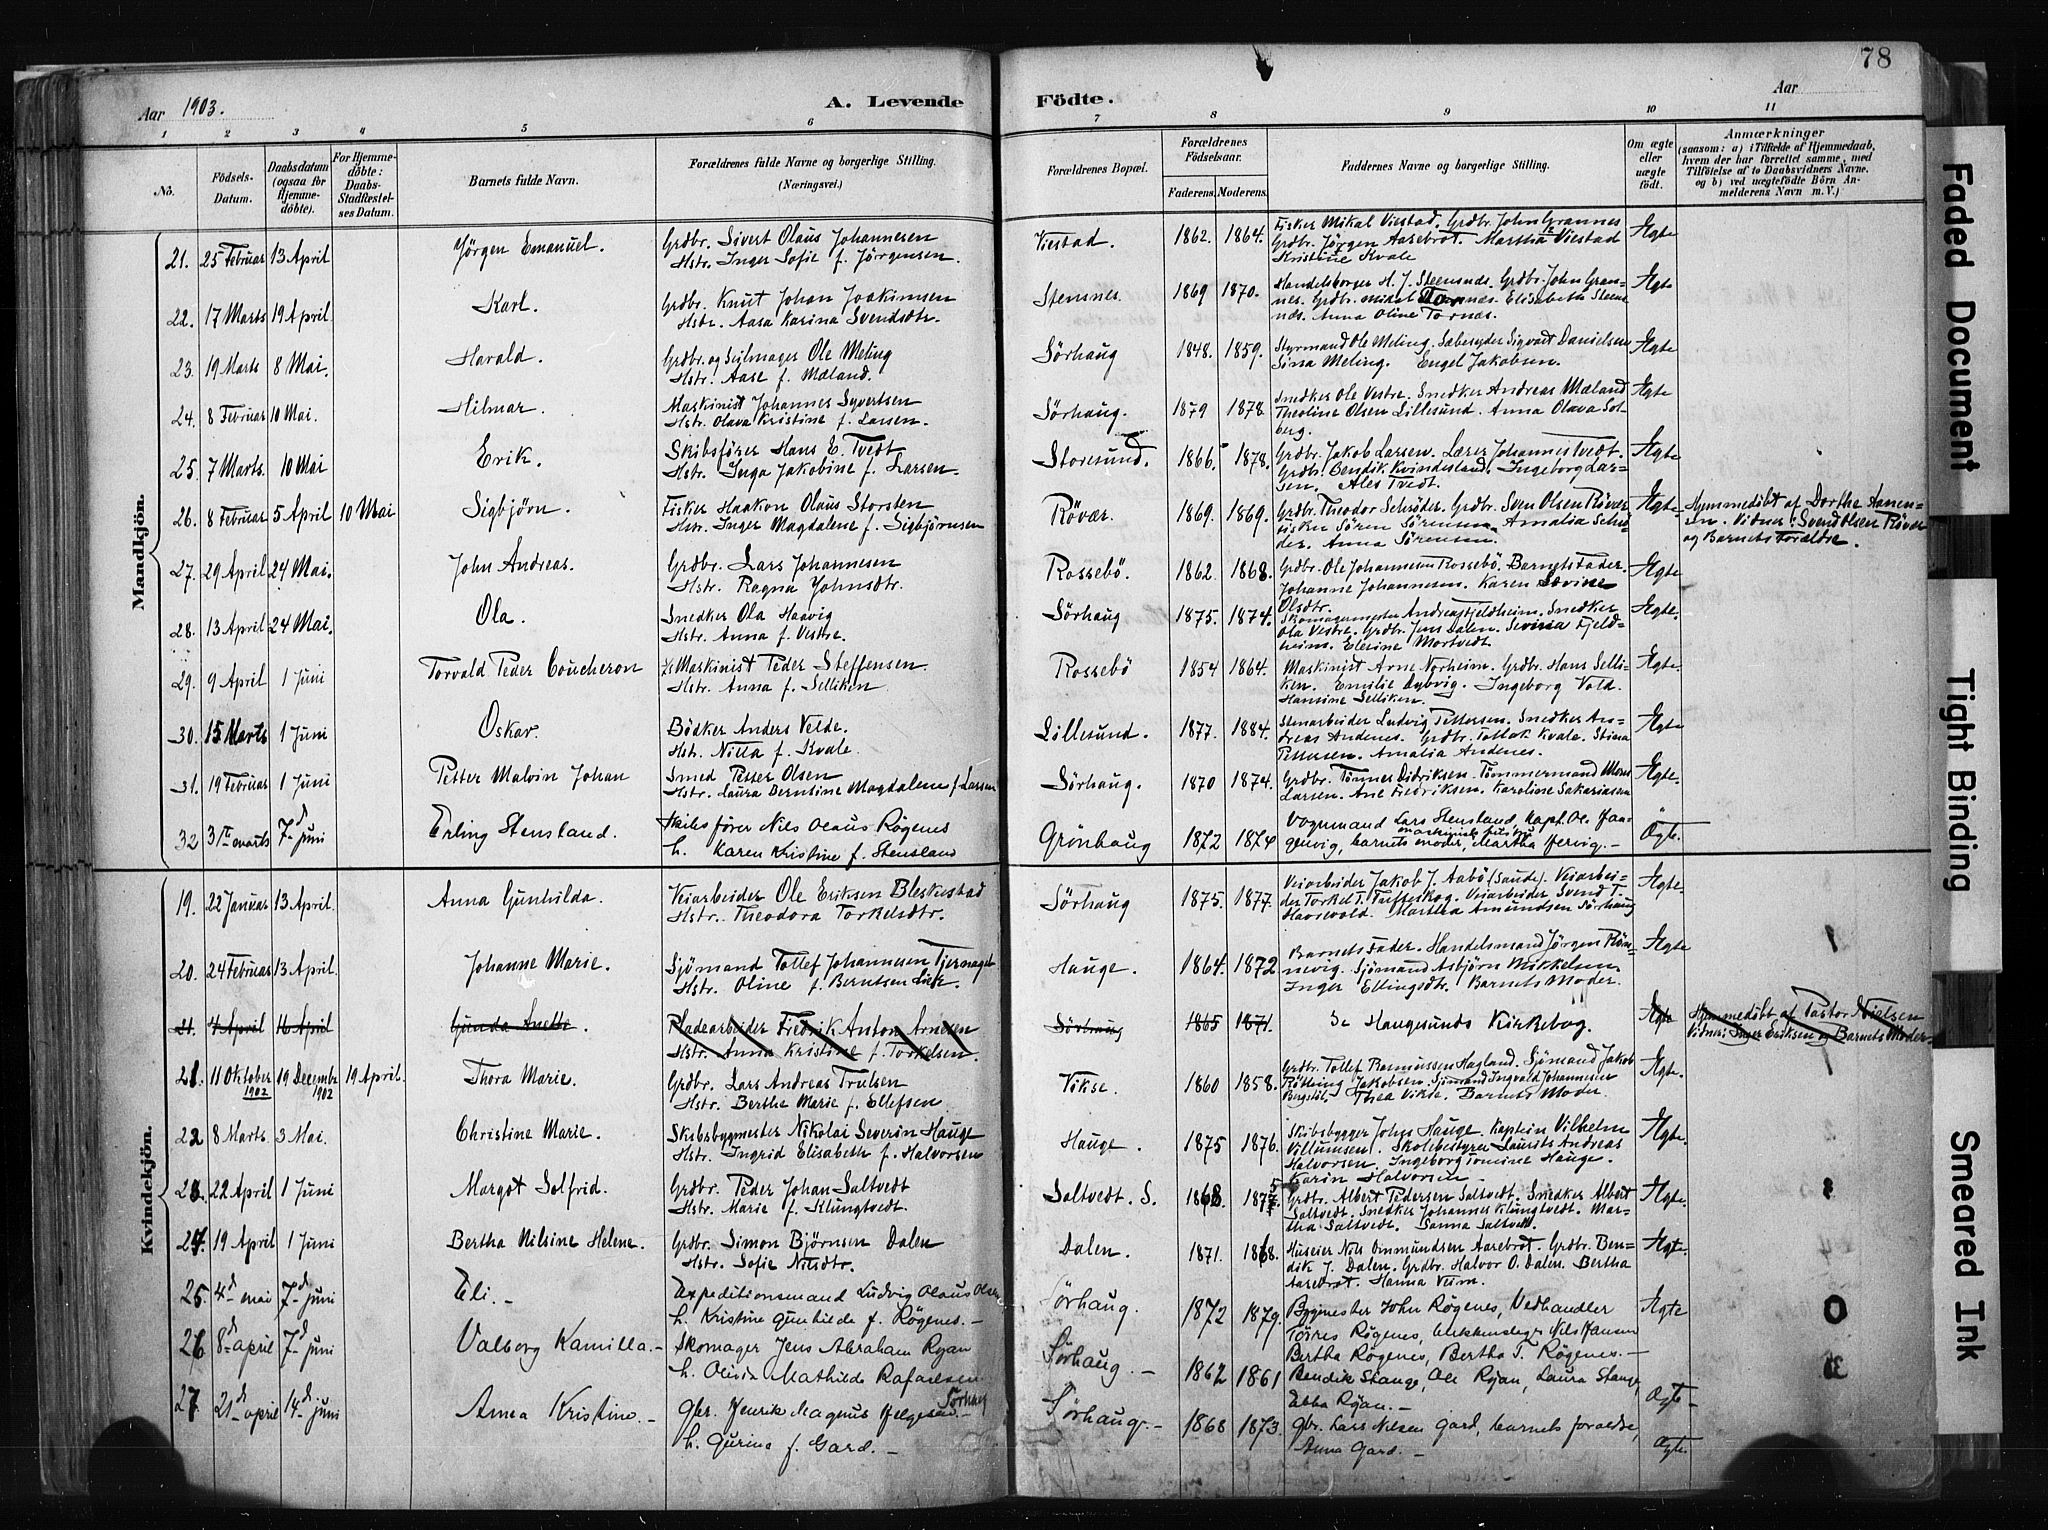 78
Aar 1903.
A. Levende Födte.
Aar
1 2 3 4 5 6 7 8 9 10 11
No. Födsels-Datum. Daabsdatum (ogsaa for Hjemmedöbte). For Hjemmedöbte: Daabs-Stadfæstelses Datum. Barnets fulde Navn. Forældrenes fulde Navne og borgerlige Stilling. (Næringsvei.) Forældrenes Bopæl. Forældrenes Födselsaar. Faderens. Moderens. Faddernes Navne og borgerlige Stilling. Om ægte eller uægte födt. Anmærkninger (saasom: a) i Tilfælde af Hjemmedaab, hvem der har forrettet samme, med Tilföielse af to Daabsvidners Navne. og b) ved uægtefödte Börn Anmelderens Navn m. V.)
Mandkjön.
21. 25 Februar 13 April Jörgen Emanuel. Grdbr. Sivert Olaus Johannesen Hstr. Inger Sofie f. Jörgensen. Viestad. 1862. 1864. Fisker Mikal Viestad. Grdbr. John Grannes Grdbr. Jörgen Aarebrot. Martha Viestad Kristine Kvale Ægte
22. 17 Marts 19 April Karl. Grdbr. Knut Johan Joakimsen Hstr. Aasa Karina Svendsdtr. Stemnes. 1869 1870. Handelsborger H. J. Steensnæs. Grdbr. John Grannes. Grdbr. Mikal Tornæs. Elisabeth Steensnæs. Anna Oline Tornæs. Ægte
23. 19 Marts 8 Mai. Harald. Grdbr. og Seilmager Ole Meling Hstr. Aase f. Mæland. Sörhaug 1848. 1859. Styrmand Ole Meling. Sæbesyder Sigvart Danielsen Sina Meling. Engel Jakobsen. Ægte
24. 8 Februar 10 Mai. Hilmar. Maskinist Johannes Syvertsen Hstr. Olava Kristine f. Larsen. Sörhaug. 1879 1878. Snedker Ole Vestre. Snedker Andreas Mæland Theoline Olsen Lillesund. Anna Olava Solberg. Ægte
25. 7 Marts. 10 Mai Erik. Skibsförer Hans E. Tvedt Hstr. Inga Jakobine f. Larsen. Storesund. 1866. 1878. Grdbr. Jakob Larsen. Lærer Johannes Tvedt. Grdbr. Bendik Kvindesland. Ingeborg Larsen. Ales Tvedt. Ægte
26. 8 Februar 5 April 10 Mai Sigbjörn. Fisker Haakon Olaus Storsten Hstr. Inger Magdalene f. Sigbjörnsen Rövær. 1869. 1869. Grdbr. Theodor Schröder. Grdbr. Sven Olsen Rövær Fisker Sören Sörensen. Amalia Schröder. Anna Sörensen. Ægte Hjemmedöbt af Dorthe Hansen. Vidner: Svend Olsen Rövær og Barnets Forældre.
27. 29 April 24 Mai. John Andreas. Grdbr. Lars Johannesen Hstr. Ragna Johnsdtr. Rossebö. 1862. 1868. Grdbr. Ole Johannesen Rossebö. Barnets Fader. Johanne Johannesen. Karen Olsdtr. Ægte
28. 13 April 24 Mai. Ola. Snedker Ola Haavig Hstr. Anna f. Vestre. Sörhaug 1875. 1874. Skomagermester Andreas Fjeldheim. Snedker Ola Vestre. Grdbr. Jens Dalen. Severia Fjeldheim. Elesine Mortvedt Ægte
29. 9 April 1 Juni Torvald Peder Coucheron Maskinist Peder Steffensen. Hstr. Anna f. Selliken. Rossebö 1854 1864. Maskinist Arne Norheim. Grdbr. Hans Selliken. Emilie Dybvig. Ingeborg Vold. Hansine Selliken. Ægte
30. 15 Marts 1 Juni Oskar. Bödker Anders Velde. Hstr. Nilla f. Kvale. Lillesund. 1877. 1884. Stenarbeider Ludvig Pettersen. Snedker Andreas Andenes. Grdbr. Tollak Kvale. Stina Pettersen. Amalia Andenes. Ægte
31. 19 Februar 1 Juni Petter Malvin Johan Smed Petter Olsen Hstr. Laura Berntine Magdalene f. Larsen Sörhaug. 1870 1874. Grdbr. Tönnes Didriksen. Tömmermand Mons Larsen. Ane Fredriksen. Karoline Sakariasen Ægte
32 31te marts 7d juni Erling Stensland. Skibsförer Nils Olaus Røgenes h. Karen Kristine f. Stensland Grönhaug 1872 1874 Vognmand Lars Stensland, kapt. Ol. Haagenvig, barnets moder, Martha Hervig.- Ögte.
Kvindekjön.
19. 22 Januar 13 April. Anna Gunhilda. Veiarbeider Ole Eriksen Bleskestad Hstr. Theodora Torkelsdtr. Sörhaug 1875. 1877. Veiarbeider Jakob J. Aabö (Saude). Veiarbeider Torkel T. Tveiteskog. Veiarbeider Svend T. Havrevold. Martha Amundsen Sörhaug Ægte
20. 24 Februar 13 April. Johanne Marie. Sjömand Tollef Johannesen Tjernagel Hstr. Oline f. Berntsen Liek. Hauge. 1864. 1872 Barnets Fader. Handelsmand Jörgen Rönnevig. Sjömand Asbjörn Mikkelsen. Inger Ellingsdtr. Barnets Moder. Ægte
21. 4 April 16 April Gunda Anette. Pladearbeider Fredrik Anton Arnesen Hstr. Anna Kristine f. Torkelsen. Sörhaug 1865 1871. Se Haugesunds Kirkebog. Ægte Hjemmedöbt af Pastor Nielsen Vidner: Inger Eriksen og Barnets Moder
21. 11 Oktober 1902 19 Decembr 1902 19 April. Thora Marie. Grdbr. Lars Andreas Trulsen Hstr. Berthe Marie f. Ellefsen Vikse. 1860 1858. Grdbr. Tollef Rasmussen Hagland. Sjömand Jakob Rötting Jakobsen. Sjömand Ingvald Johannesen Bergstöl. Thea Vikse. Barnets Moder. Ægte.
22 8 Marts. 3 Mai. Christine Marie. Skibsbygmester Nikolai Severin Hauge Hstr. Ingrid Elisabeth f. Halvorsen Hauge. 1875 1876. Skibsbygger Johs Hauge. Kaptein Vilhelm Villumsen. Skolebestyrer Laurits Andreas Halvorsen. Ingeborg Tomine Hauge. Karin Halvorsen. Ægte.
23. 22 April 1 Juni Margot Solfrid. Grdbr. Peder Johan Saltvedt Hstr. Marie f. Klungtvedt. Saltvedt. S. 1868. 1875. Grdbr. Albert Pedersen Saltvedt. Snedker Albert Saltvedt. Snedker Johannes Klungtvedt. Martha Saltvedt. Sanna Saltvedt. Ægte.
24. 19 April 1 Juni Bertha Nilsine Helene. Grdbr. Simon Björnsen Dalen Hstr. Sofie Nilsdtr. Dalen. 1871. 1868. Huseier Nils Ommundsen Aarebrot. Grdbr. Bendik J. Dalen. Grdbr. Halvor O. Dalen. Bertha Aarebrot. Hanna Veim. Ægt.
25. 4d mai 7d juni Eli.- Expeditionsmand Ludvig Olaus Olsen h. Kristine Gunhilde f. Røgenes.- Sørhaug. 1872 1879. Bygmester John Røgenes, Vedhandler Tørres Røgenes, Nils Hansen Bertha Røgenes, Bertha T. Røgenes.- Ægte
26 8d april 7d juni Valborg Kamilla.- Skomager Jens Abraham Ryan h. Olivia Mathilde Rafaelsen Sørhaug.- 1862 1861 Bendik Stange, Ole Ryan, Laura Stange, Ebba Ryan.- Ægte-
27 21d april 14d juni Anna Kristine.- gbr. Henrik Magnus Helgesen.- Sørhaug h. Gurina f. Gard.- Sørhaug.- 1868 1873. gbr. Lars Nilsen Gard, barnets foraldre, Anna Gard.- Ægte.
Faded Document
Tight Binding
Smeared Ink